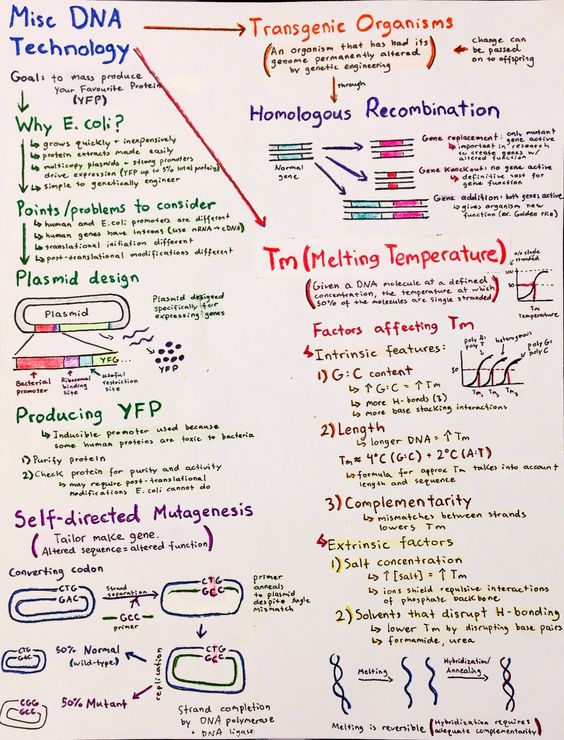 Misc DNA
Technology
Goal: to mass produce
Your Favourite Protein
(YFP)
Why E.coli?
↳ grows quickly + inexpensively
↳ protein extracts made easily
↳ multicopy plasmids + strong promoters
drive expression (YFP up to 5% total protein)
↳ simple to genetically engineer
Points/problems to consider
↳ human and E.coli promoters are different
↳ human genes have introns (use mRNA→cDNA)
↳ translational initiation different
↳ post-translational modifications different
Plasmid design
Plasmid
Plasmid designed
specifically for
expressing genes
YFG
YFP
Bacterial
promoter
Ribosomal
binding
site
useful
restriction
site
Producing YFP
↳ Inducible promoter used because
some human proteins are toxic to bacteria
1) Purify protein
2) Check protein for purity and activity
↳ may require post-translational
modifications E.coli cannot do
Self-directed Mutagenesis
(Tailor make gene.
Altered sequence = altered function)
Converting codon
CTG
GAC
Strand
separation
GCC
primer
CTG
GCC
primer
anneals
to plasmid
despite single
mismatch
replication
CTG
GCC
Strand completion
by DNA polymerase
+ DNA ligase
CTG
GAC
50% Normal
(wild-type)
CGG
GCC
50% Mutant
Transgenic Organisms
(An organism that has had its
genome permanently altered
by genetic engineering)
← Change can
be passed
on to offspring
through
Homologous Recombination
Normal
gene
Gene replacement: only mutant
gene active
↳ important in research
to create genes w/
altered function
Gene Knockout: no gene active
↳ definitive test for
gene function
Gene addition: both genes active
↳ gives organism new
function (ex. Golden rice)
Tm (Melting Temperature)
(Given a DNA molecule at a defined
concentration, the temperature at which
50% of the molecules are single stranded)
% single
stranded
100
50
Tm
Temperature
Factors affecting Tm
↳ Intrinsic features:
1) G:C content
↳ ↑ G:C = ↑ Tm
↳ more H-bonds (3)
↳ more base stacking interactions
poly A:
poly T
heterogenous
poly G:
poly C
50
Tm₁ Tm₂ Tm₃
2) Length
↳ longer DNA = ↑ Tm
Tm ≈ 4°C (G:C) + 2°C (A:T)
↳ formula for approx Tm takes into account
length and sequence
3) Complementarity
↳ mismatches between strands
lowers Tm
↳ Extrinsic factors
1) Salt concentration
↳ ↑ [salt] = ↑ Tm
↳ ions shield repulsive interactions
of phosphate backbone
2) Solvents that disrupt H-bonding
↳ lower Tm by disrupting base pairs
↳ formamide, urea
Melting
Hybridization/
Annealing
Melting is reversible (Hybridization requires
adequate complementarity)